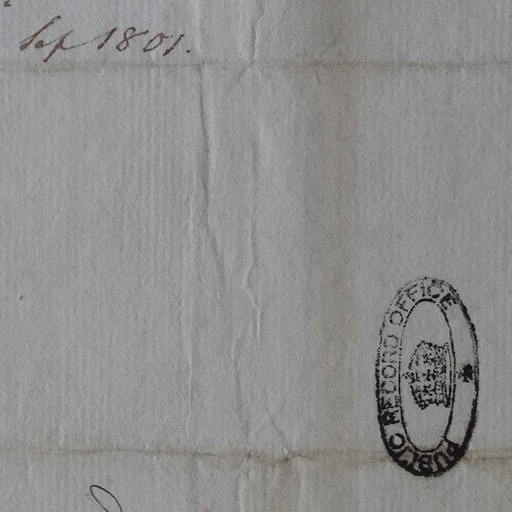 Sep 1801.
PUBLIC RECORD OFFICE